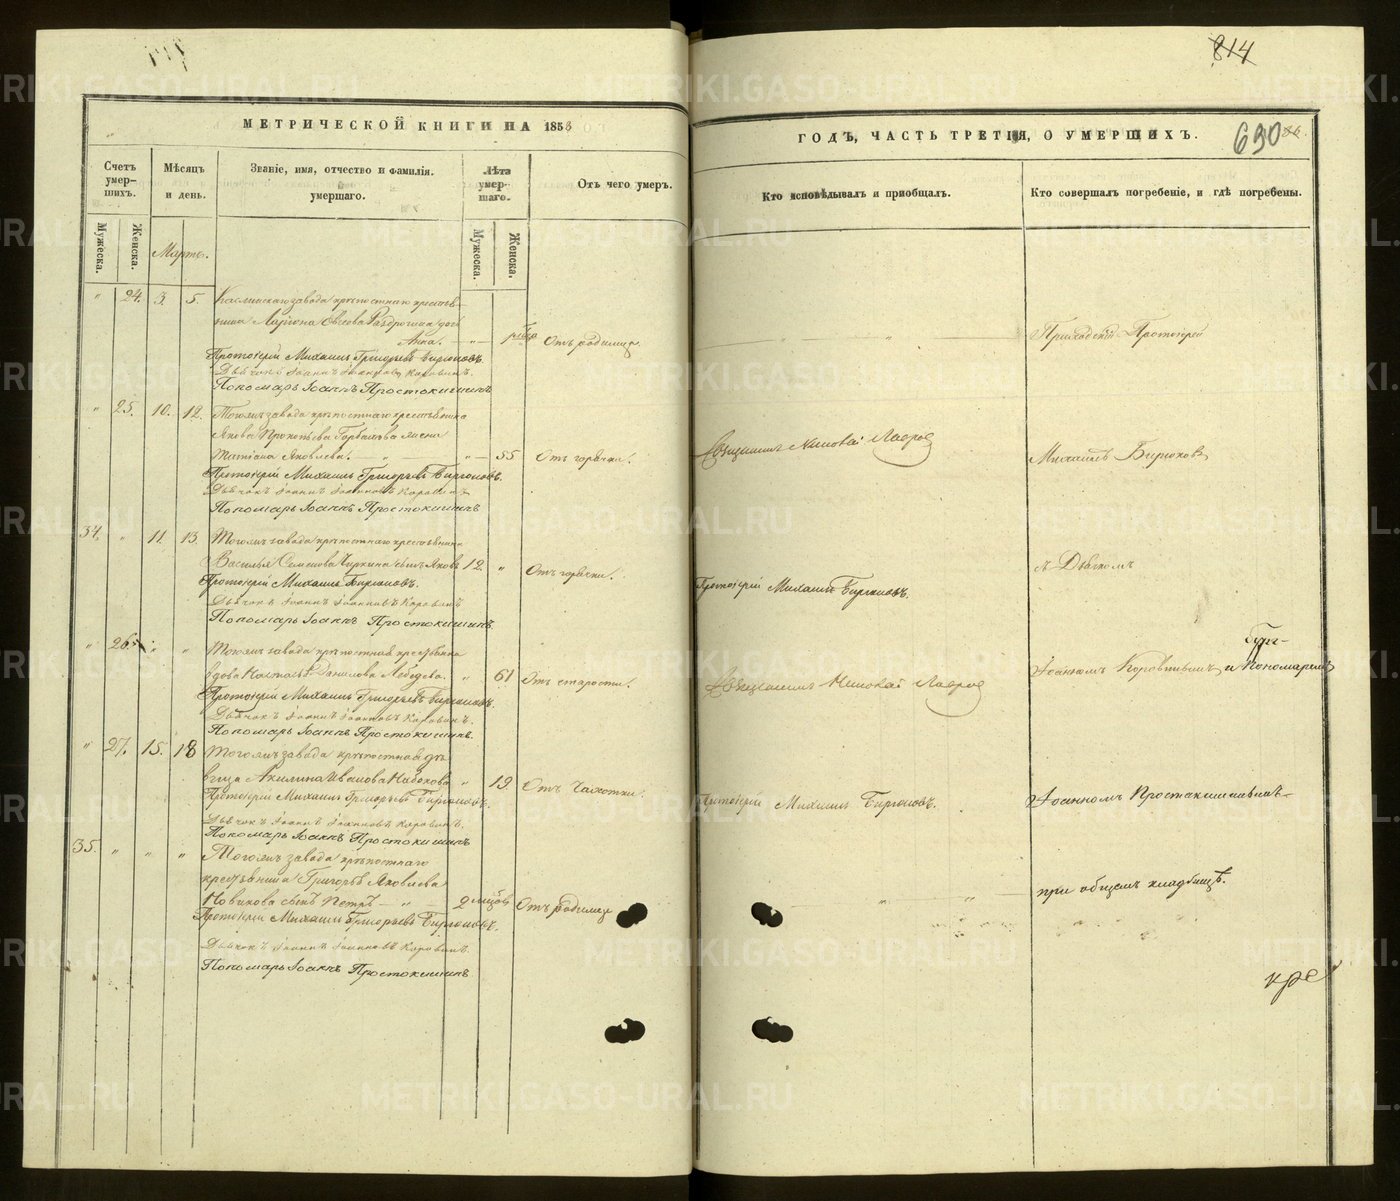 814
МЕТРИЧЕСКОЙ КНИГИ НА 1853
ГОДЪ, ЧАСТЬ ТРЕТІЯ, О УМЕРШИХЪ.
690
Счетъ умер-шихъ.
Мѣсяцъ и день.
Званіе, имя, отчество и фамилія. умершаго.
Лѣта умер-шаго.
Отъ чего умеръ.
Кто исповѣдывалъ и пріобщалъ.
Кто совершалъ погребеніе, и гдѣ погребены.
Мужеска.
Женска.
Мартъ.
Мужеска.
Женска.
" 24. 3. 5. Каслинскаго завода крѣпостнаго крестья-
нина Ларіона дочь
Анна. Отъ родимца
Приходскій Протоіерей
Протоіерей Михаилъ Григорьевъ Бирюковъ.
Дьячокъ Іоаннъ Іоанновъ Коровинъ.
Пономарь Іоаннъ Простокишинъ
" 25. 10. 12. Тогожъ завода крѣпостнаго крестьянина
Якова Прокопьева жена
Татіана Яковлева. " 55 Отъ горячки.
Священникъ Николай Лавров
Михаилъ Бирюковъ
Протоіерей Михаилъ Григорьевъ Бирюковъ.
Дьячокъ Іоаннъ Іоанновъ Коровинъ
Пономарь Іоаннъ Простокишинъ
34. " 11. 13. Тогожъ завода крѣпостнаго крестьянина
Василья Семенова сынъ Яковъ 12. " Отъ горячки.
съ Дьячкомъ
Протоіерей Михаилъ Бирюковъ.
Протоіерей Михаилъ Бирюковъ.
Дьячокъ Іоаннъ Іоанновъ Коровинъ
Пономарь Іоаннъ Простокишинъ.
" 26. " " Тогожъ завода крѣпостная крестьянка
вдова Данилова Лебедева. " 61 Отъ старости.
Священникъ Николай Лавров
Іоанномъ Коровинымъ и Пономаремъ
Протоіерей Михаилъ Григорьевъ Бирюковъ.
Дьячокъ Іоаннъ Іоанновъ Коровинъ.
Пономарь Іоаннъ Простокишинъ.
" 27. 15. 18 Тогожъ завода крѣпостная дѣ-
вица Акилина Иванова Набокова " 19. Отъ Чахотки.
Протоіерей Михаилъ Бирюковъ.
Іоанномъ Простокишинымъ
Протоіерей Михаилъ Григорьевъ Бирюковъ.
Дьячокъ Іоаннъ Іоанновъ Коровинъ.
Пономарь Іоаннъ Простокишинъ
35. " " " Тогожъ завода крѣпостнаго
крестьянина Григорья Яковлева
Новикова сынъ Петръ 2 мѣсяц Отъ родимца
при общемъ кладбищѣ.
Протоіерей Михаилъ Григорьевъ Бирюковъ.
Дьячокъ Іоаннъ Іоанновъ Коровинъ.
Пономарь Іоаннъ Простокишинъ.
METRIKI.GASO-URAL.RU